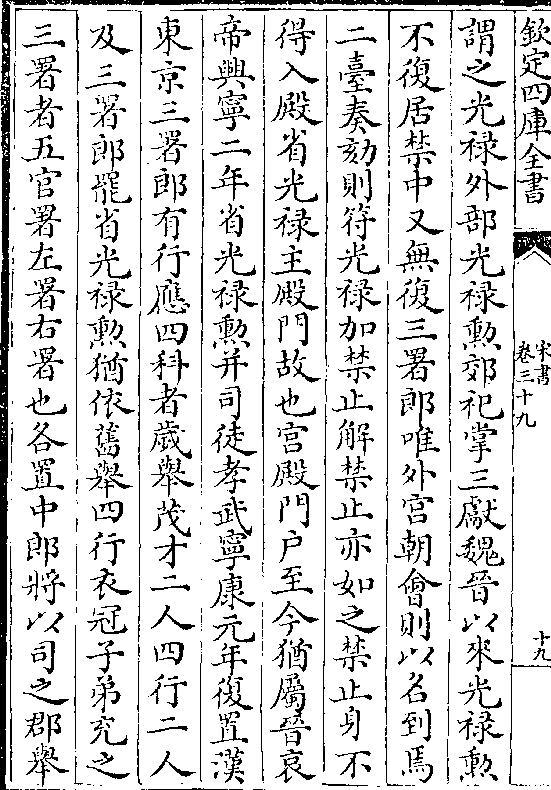 欽定四庫全書
宋書
卷三十九
十九
謂之光禄外部光禄勲郊祀掌三獻魏晉以來光禄勲
不復居禁中又無復三署郎唯外宫朝會則以名到焉
二臺奏劾則符光禄加禁止解禁止亦如之禁止身不
得入殿省光禄主殿門故也宫殿門户至今猶屬晉哀
帝興寧二年省光禄勲并司徒孝武寧康元年復置漢
東京三署郎有行應四科者歲舉茂才二人四行二人
及三署郎罷省光禄勲猶依舊舉四行衣冠子弟充之
三署者五官署左署右署也各置中郎將以司之郡舉